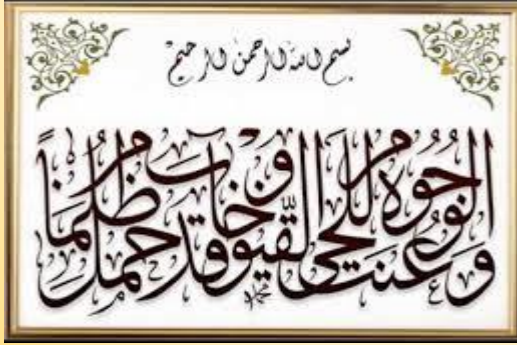 بسم الله الرحمن الرحيم
وعنت الوجوه للحي القيوم وقد خاب من حمل ظلماً